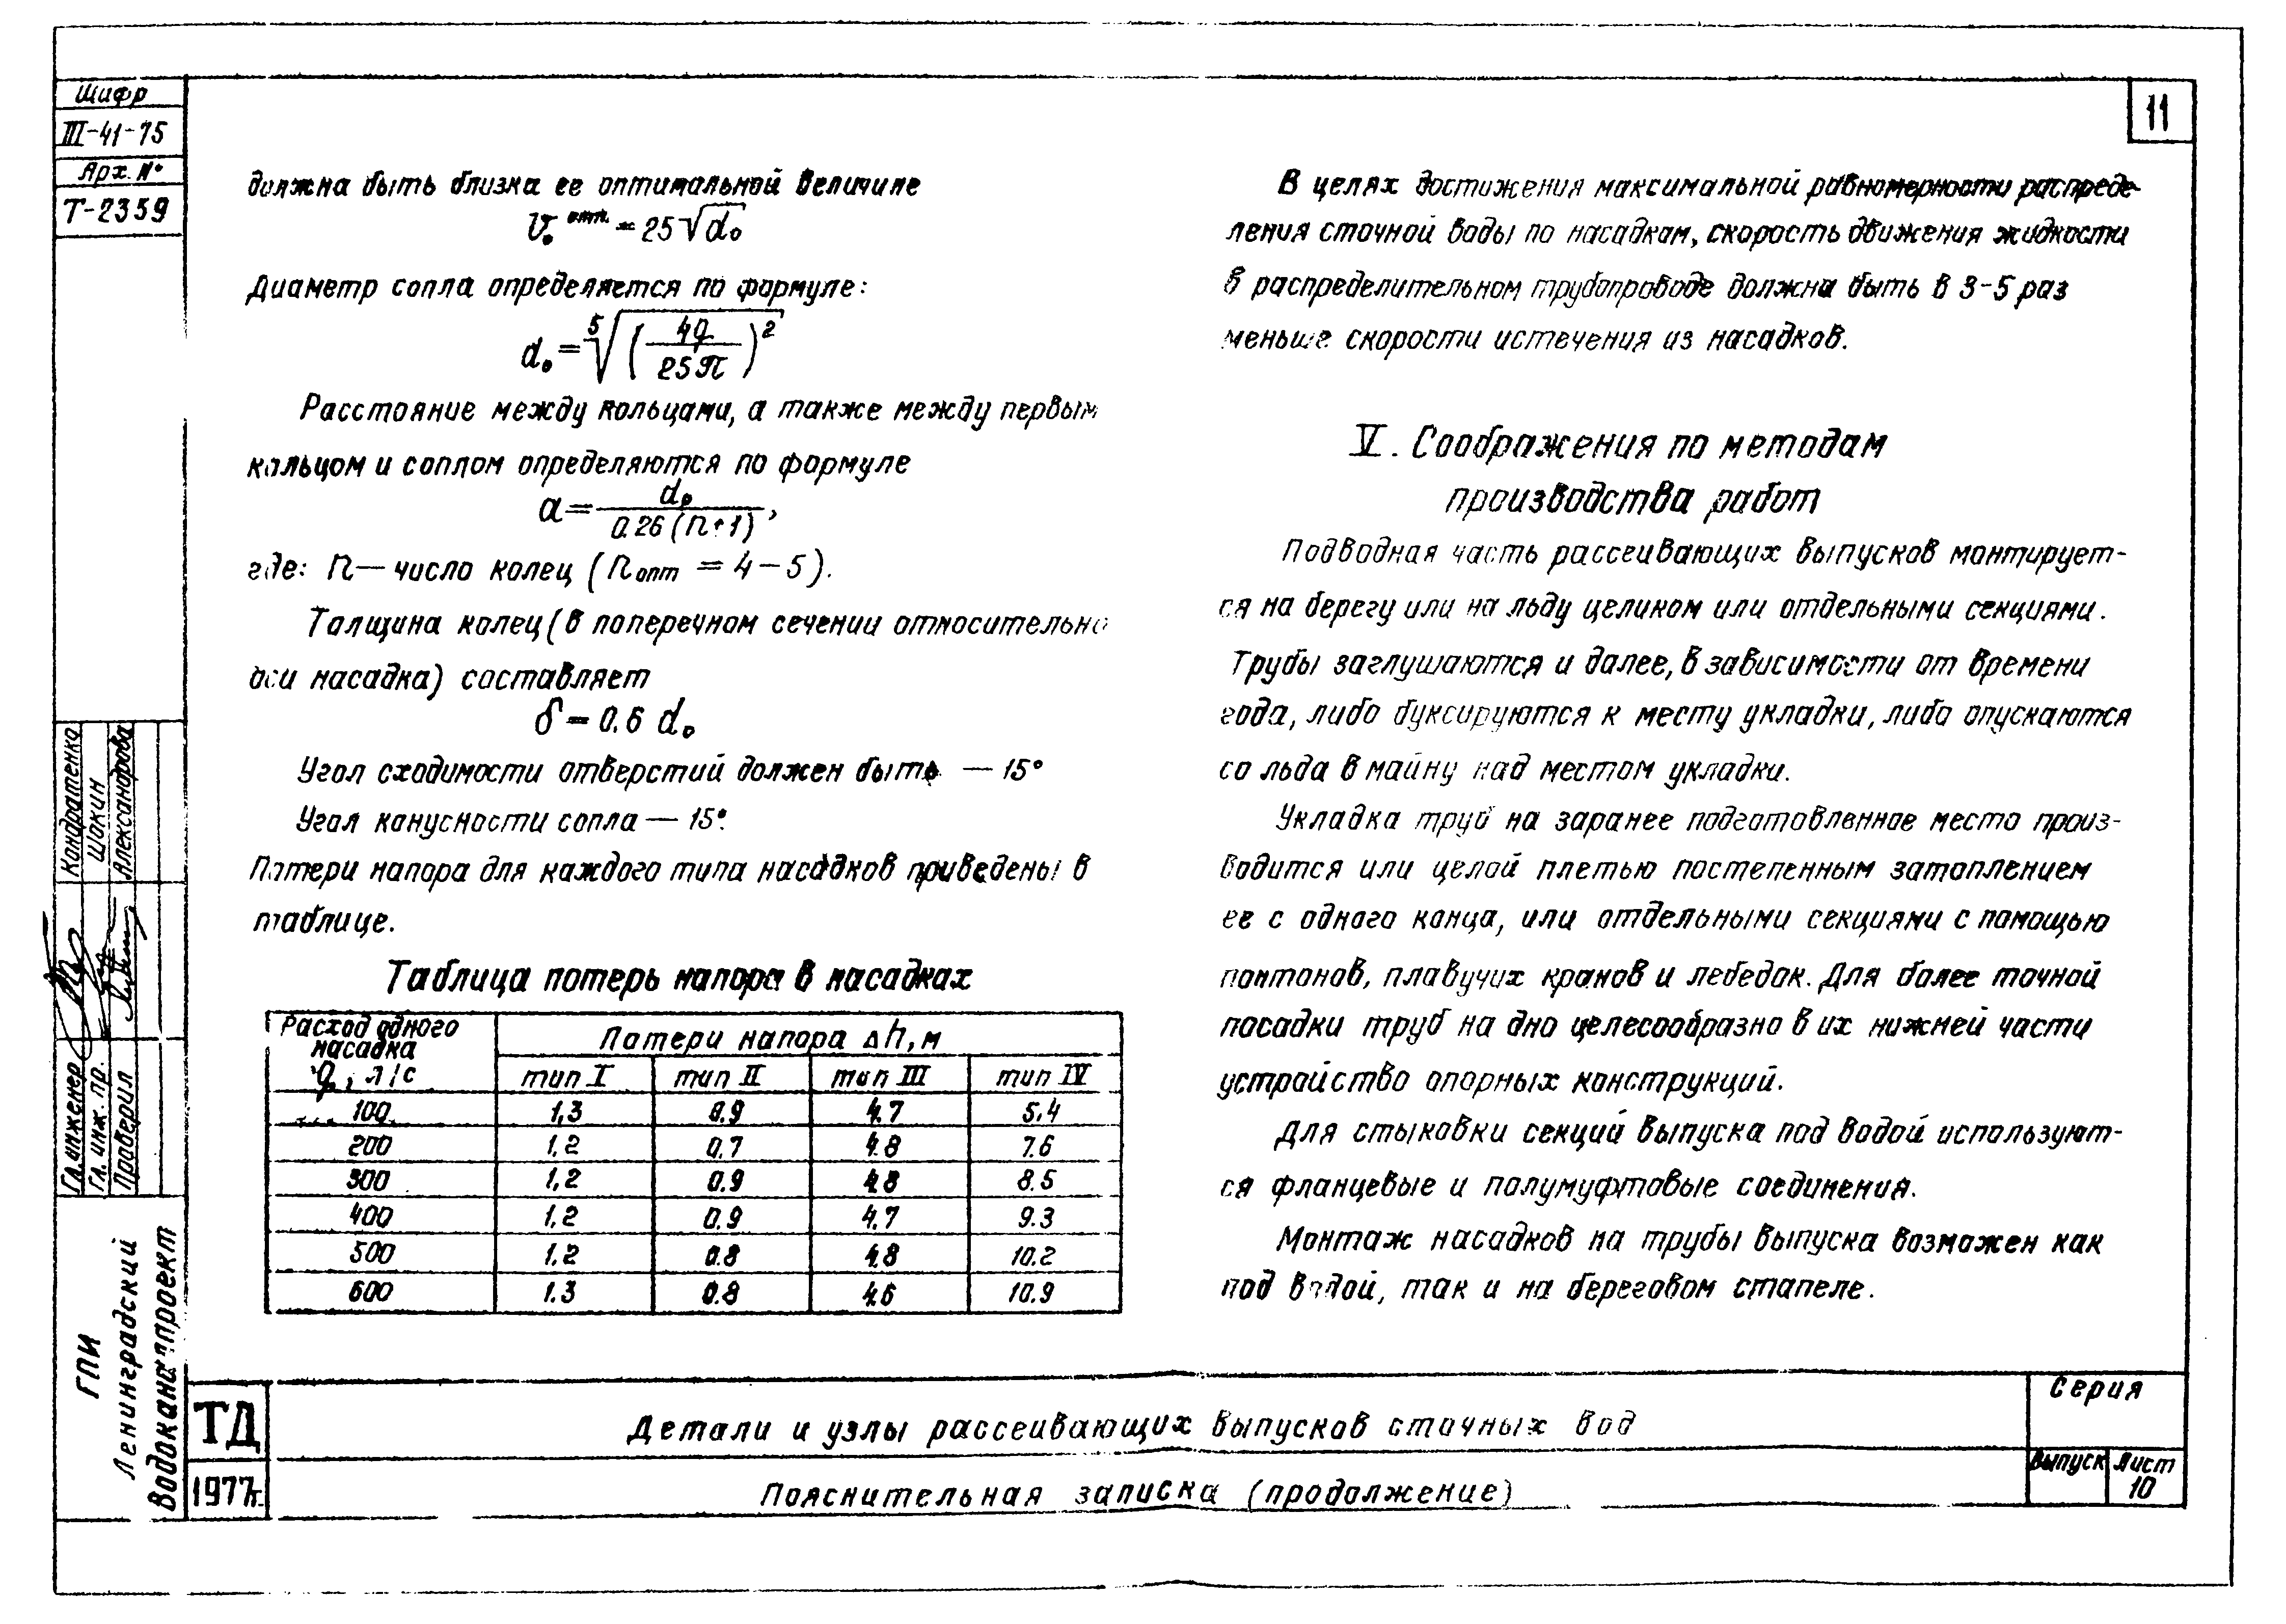 Шифр
III-41-75
Арх. №
Т-2359
11
должна быть близка ее оптимальной величине
v₀ опт. = 25√d₀
Диаметр сопла определяется по формуле:
d₀ = ⁵√(4q/25π)²
Расстояние между кольцами, а также между первым
кольцом и соплом определяются по формуле
a = d₀ / 0.26 (n+1),
где: n — число колец (n опт = 4-5).
Толщина колец (в поперечном сечении относительно
оси насадка) составляет
δ = 0.6 d₀
Угол сходимости отверстий должен быть — 15°
Угол конусности сопла — 15°.
Потери напора для каждого типа насадков приведены в
таблице.
Таблица потерь напора в насадках
Расход одного насадка q, л/с | Потери напора Δh, м
тип I | тип II | тип III | тип IV
100 | 1,3 | 0.9 | 4.7 | 5,4
200 | 1,2 | 0,7 | 4.8 | 7.6
300 | 1,2 | 0.9 | 4.8 | 8.5
400 | 1,2 | 0.9 | 4,7 | 9.3
500 | 1.2 | 0.8 | 4.8 | 10.2
600 | 1.3 | 0.8 | 4.6 | 10.9
В целях достижения максимальной равномерности распреде-
ления сточной воды по насадкам, скорость движения жидкости
в распределительном трубопроводе должна быть в 3-5 раз
меньше скорости истечения из насадков.
V. Соображения по методам
производства работ
Подводная часть рассеивающих выпусков монтирует-
ся на берегу или на льду целиком или отдельными секциями.
Трубы заглушаются и далее, в зависимости от времени
года, либо буксируются к месту укладки, либо опускаются
со льда в майну над местом укладки.
Укладка труб на заранее подготовленное место произ-
водится или целой плетью постепенным затоплением
ее с одного конца, или отдельными секциями с помощью
понтонов, плавучих кранов и лебедок. Для более точной
посадки труб на дно целесообразно в их нижней части
устройство опорных конструкций.
Для стыковки секций выпуска под водой использует-
ся фланцевые и полумуфтовые соединения.
Монтаж насадков на трубы выпуска возможен как
под водой, так и на береговом стапеле.
Гл. инженер Кондратенко
Гл. инж. пр. Шокин
Проверил Александрова
ГПИ
Ленинградский
Водоканалпроект
ТД
1977г.
Детали и узлы рассеивающих выпусков сточных вод
Пояснительная записка (продолжение)
Серия
Выпуск
Лист
10